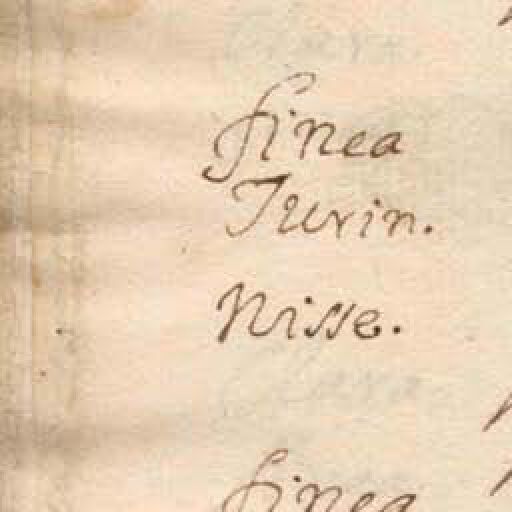 finea
Turin.
Nisse.
finea